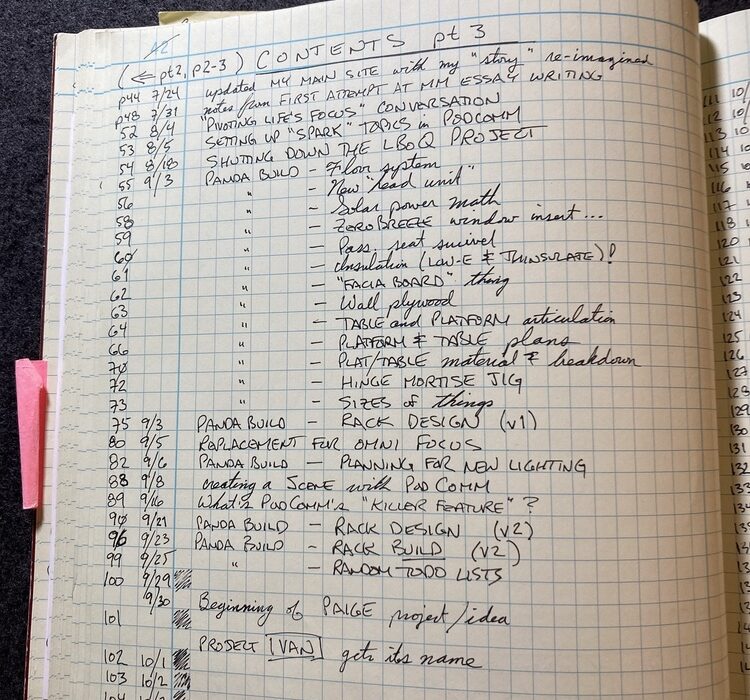 A2
(← pt2, p2-3) CONTENTS pt 3
p44 7/24 updated MY MAIN SITE with my "story" re-imagined
p48 7/31 notes from FIRST ATTEMPT AT MM ESSAY WRITING
52 8/4 "PIVOTING LIFE'S FOCUS" CONVERSATION
53 8/5 SETTING UP "SPARK" TOPICS in PODCOMM
54 8/18 SHUTTING DOWN THE LBoQ PROJECT
55 9/3 PANDA BUILD - Floor system
56 " - New "head unit"
58 " - Solar power math
59 " - ZEROBREEZE window insert...
60 " - Pass. seat swivel
61 " - Insulation (LOW-E & THINSULATE)!
62 " - "FACIA BOARD" thing
63 " - Wall plywood
64 " - TABLE and PLATFORM articulation
66 " - PLATFORM & TABLE plans
70 " - PLAT/TABLE material & breakdown
72 " - HINGE MORTISE JIG
73 " - SIZES of things
75 9/3 PANDA BUILD - RACK DESIGN (v1)
80 9/5 REPLACEMENT FOR OMNI FOCUS
82 9/6 PANDA BUILD - PLANNING FOR NEW LIGHTING
88 9/8 creating a SCENE with POD COMM
89 9/16 What's PODCOMM's "KILLER FEATURE"?
90 9/21 PANDA BUILD - RACK DESIGN (v2)
96 9/23 PANDA BUILD - RACK BUILD (v2)
99 9/25 " - RANDOM TODO LISTS
100 9/29
9/30 Beginning of PAIGE project/idea
101
PROJECT IVAN gets its name
102 10/1
103 10/2
111 10/
112 10/
113 10
114 10
115 10
116
117
118
120
121
122
123
124
125
126
127
128
129
130
131
132
133
134
135